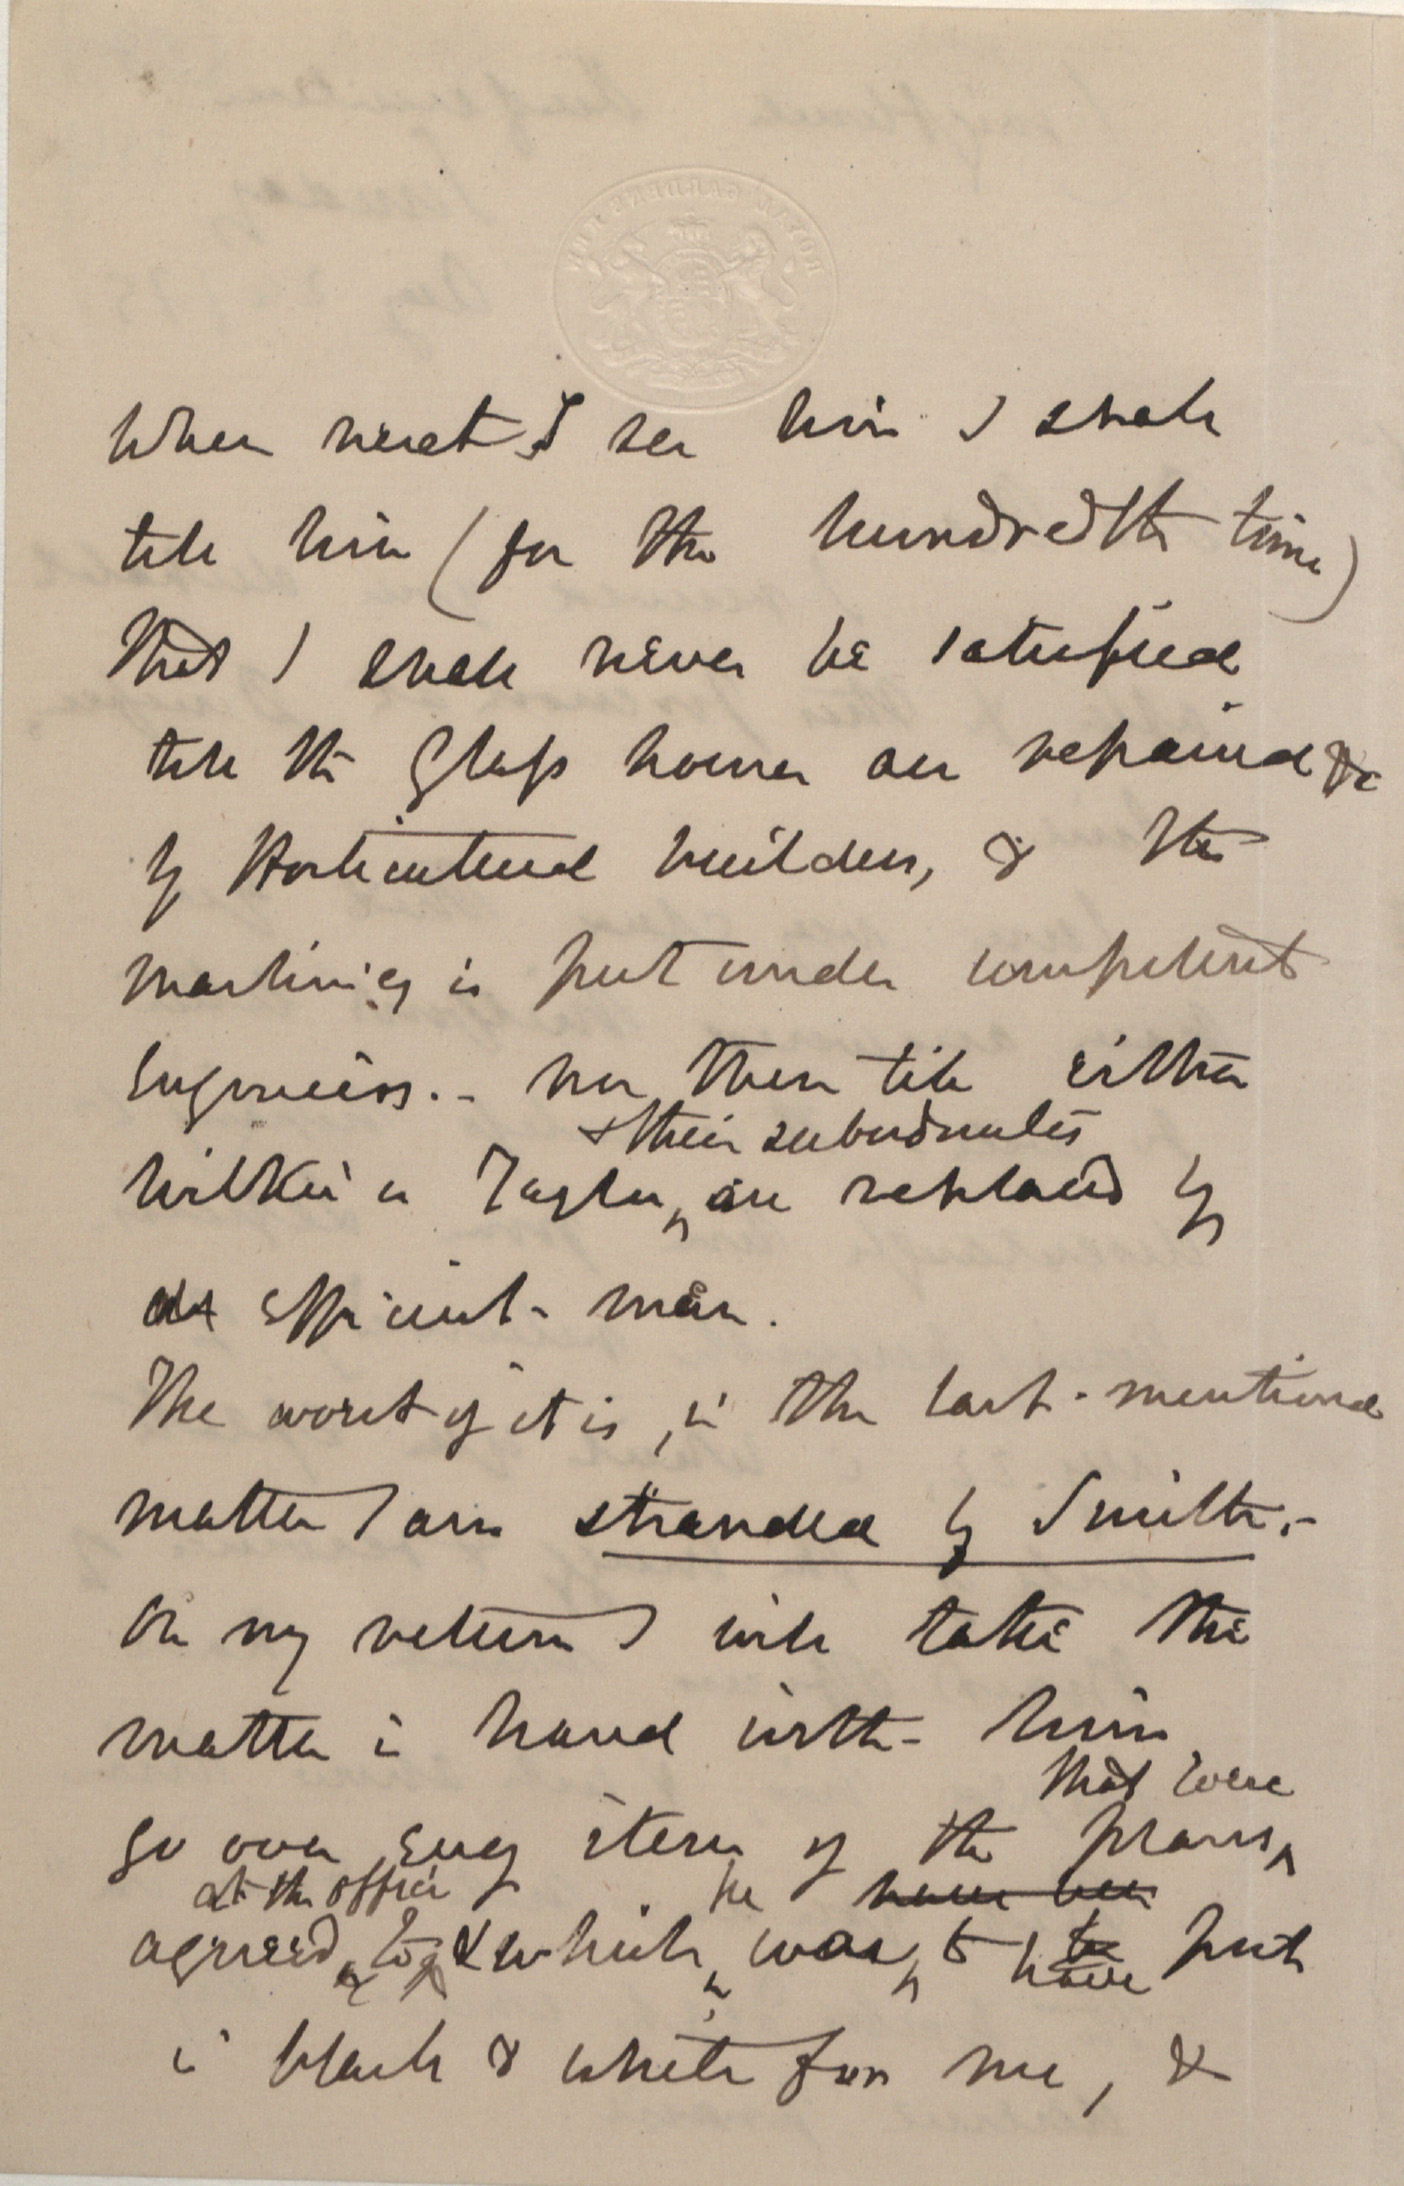 When next I see him I shall
tell him (for the hundredth time)
that I shall never be satisfied
till the Glass houses are repaired &c
by Horticultural builders, & the
machinery is put under competent
Engineers. - nor then till either
& their subordinates
Wilkie or Taylor, are replaced by
an efficient - man.
The worst of it is, in the last - mentioned
matter I am stranded by Smith. -
On my return I will take the
matter in hand with - him
that were
go over every item of the plans
at the office he have been
agreed & which was to be have put
in black & white for me, &